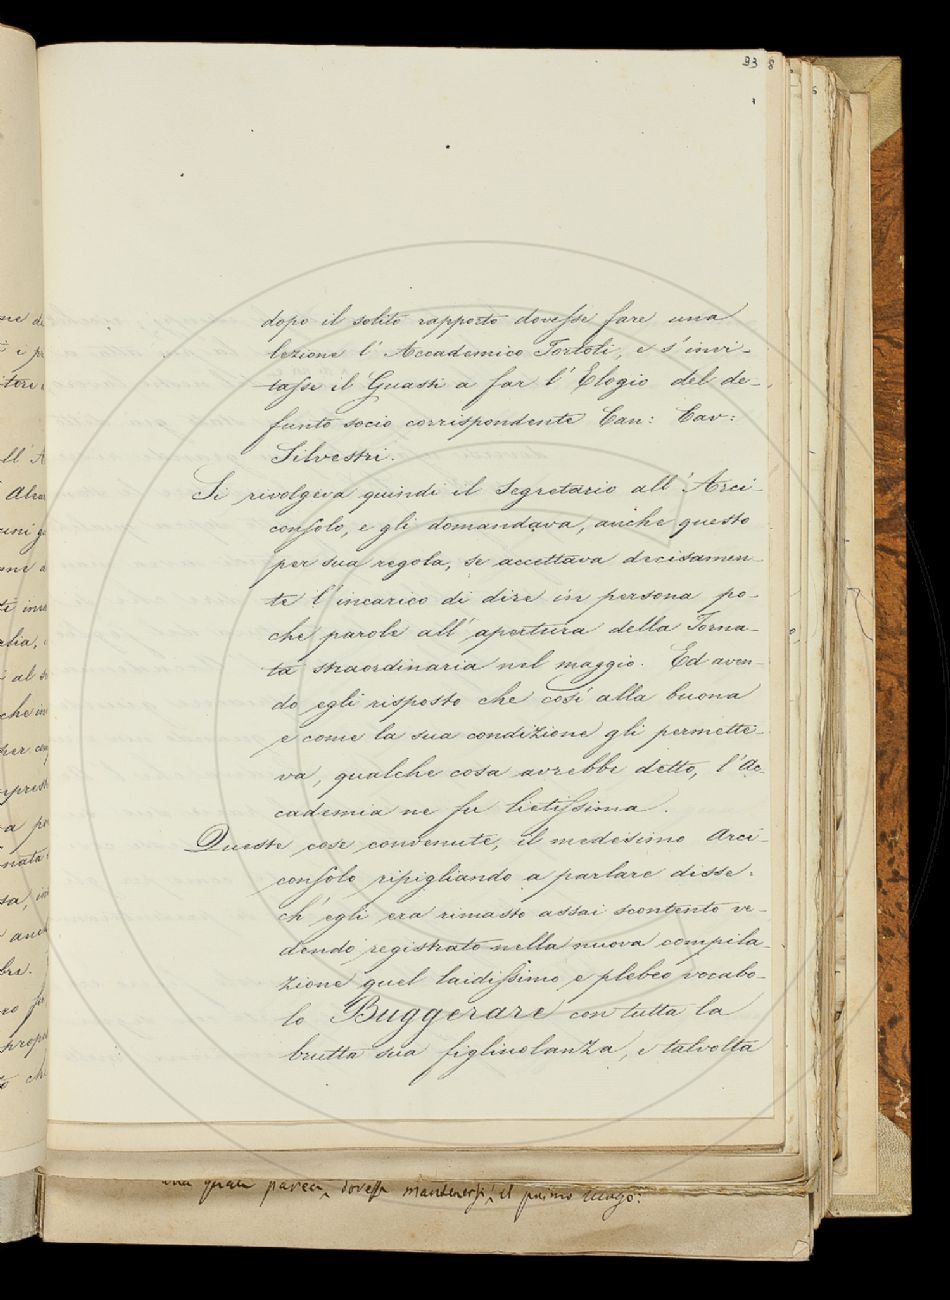 33 8
dopo il solito rapporto dovesse fare una
lezione l'Accademico Tortoli, e s'invi-
tasse il Guasti a far l'Elogio del de-
funto socio corrispondente Can: Cav:
Silvestri.
Si rivolgeva quindi il Segretario all'Arci-
consolo, e gli domandava, anche questo
per sua regola, se accettava decisamen-
te l'incarico di dire in persona po-
che parole all'apertura della Torna-
ta straordinaria nel maggio. Ed aven-
do egli risposto che così alla buona
e come la sua condizione gli permette-
va, qualche cosa avrebbe detto, l'Ac-
cademia ne fu lietissima.
Queste cose convenute, il medesimo Arci-
consolo ripigliando a parlare disse.
ch'egli era rimasto assai scontento ve-
dendo registrato nella nuova compila-
zione quel laidissimo e plebeo vocabo-
lo Buggerare con tutta la
brutta sua figliuolanza, e talvolta
parea, dovesse mantenersi il primo luogo: